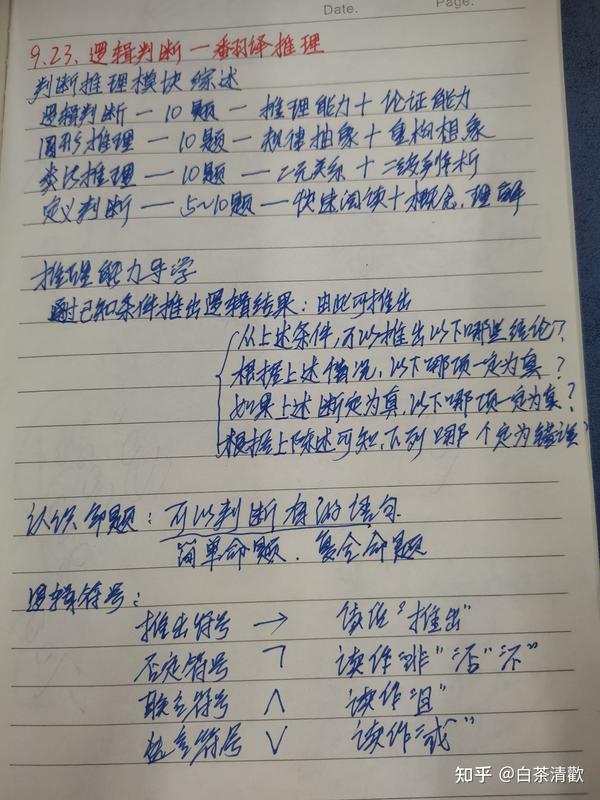 Date.
Page.
9.23. 逻辑判断—翻译推理
判断推理模块综述
逻辑判断—10题—推理能力+论证能力
图形推理—10题—规律抽象+重构想象
类比推理—10题—二元关系+二级分析
定义判断—5~10题—快速阅读+概念.理解
推理能力导学
通过已知条件推出逻辑结果：由此可推出
从上述条件，可以推出以下哪些结论？
根据上述情况，以下哪项一定为真？
如果上述断定为真，以下哪项一定为真？
根据上陈述可知，下列哪个定为错误
认识命题：可以判断真假的语句
简单命题.复合命题
逻辑符号：
推出符号 → 读作"推出"
否定符号 ㄱ 读作"非""否""不"
联言符号 ∧ 读作"且"
选言符号 ∨ 读作"或"
知乎 @白茶清歡